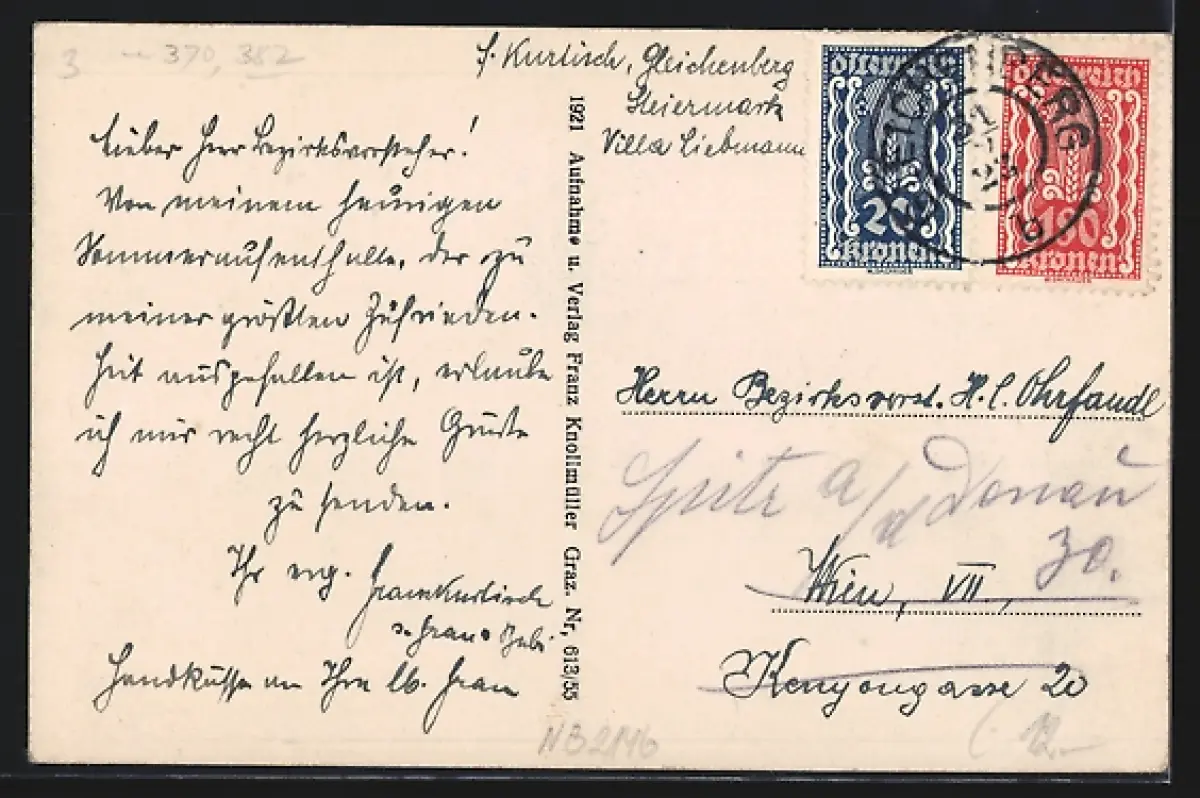 3 370, 382
Kurtisch, Gleichenberg
Steiermark
Villa Liebmann
Lieber Herr Bezirksvorsteher!
Von meinem heurigen
Sommeraufenthalte, der zu
meiner größten Zufrieden-
heit ausgefallen ist, erlaube
ich mir recht herzliche Grüße
zu senden.
Ihr erg.
Handküsse an Ihre lb. Frau
1921 Aufnahme u. Verlag Franz Knollmüller Graz. Nr, 613/55
Österreich
20
Kronen
Österreich
100
Kronen
GLEICHENBERG
Herrn Bezirksvorst. H. C. Ohrfandl
Spitz a/d Donau
30.
Wien, VII,
Kenyongasse 20
NB2146
12.-